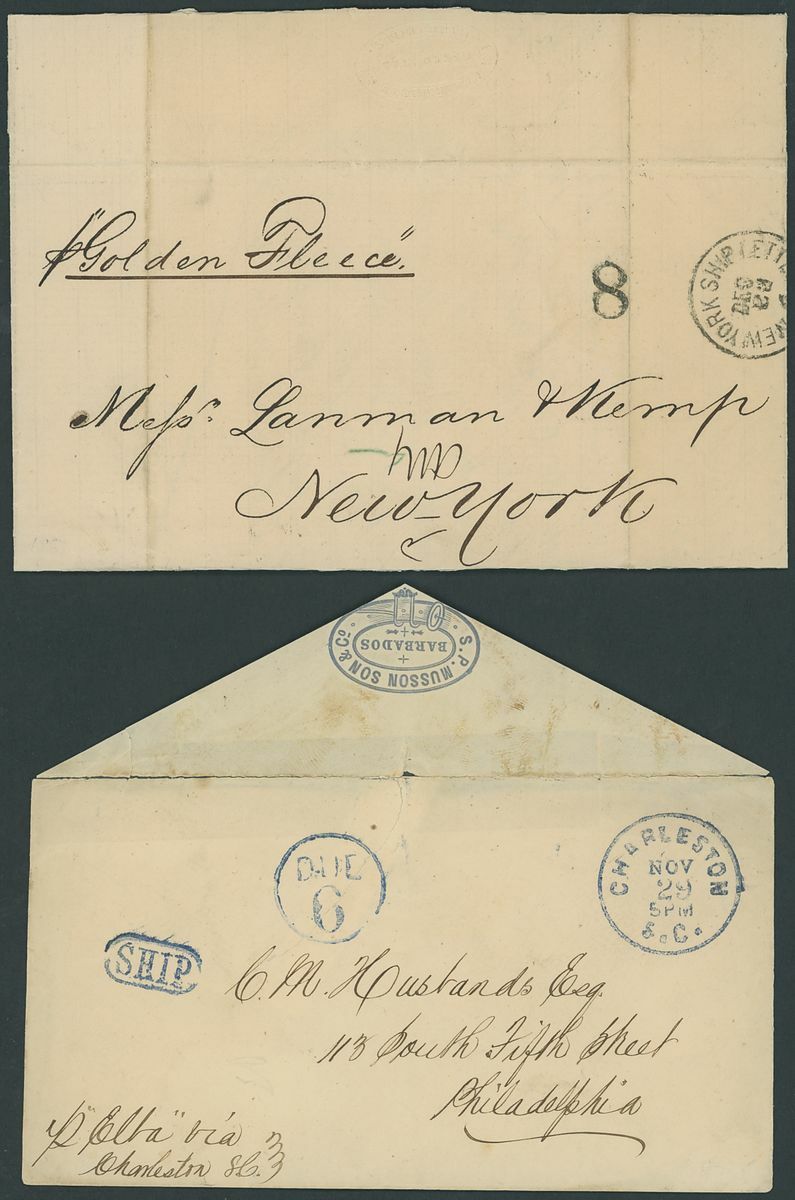 p "Golden Fleece".
8
NEW YORK SHIP LETTER
Mess<sup>rs</sup> Lanman & Kemp
New-York
S. P. MUSSON SON & Co.
BARBADOS
DUE
6
CHARLESTON
NOV
29
5PM
S.C.
SHIP
C. M. Husbands Esq.
113 South Fifth Street
Philadelphia
p "Elba" via
Charleston S.C.